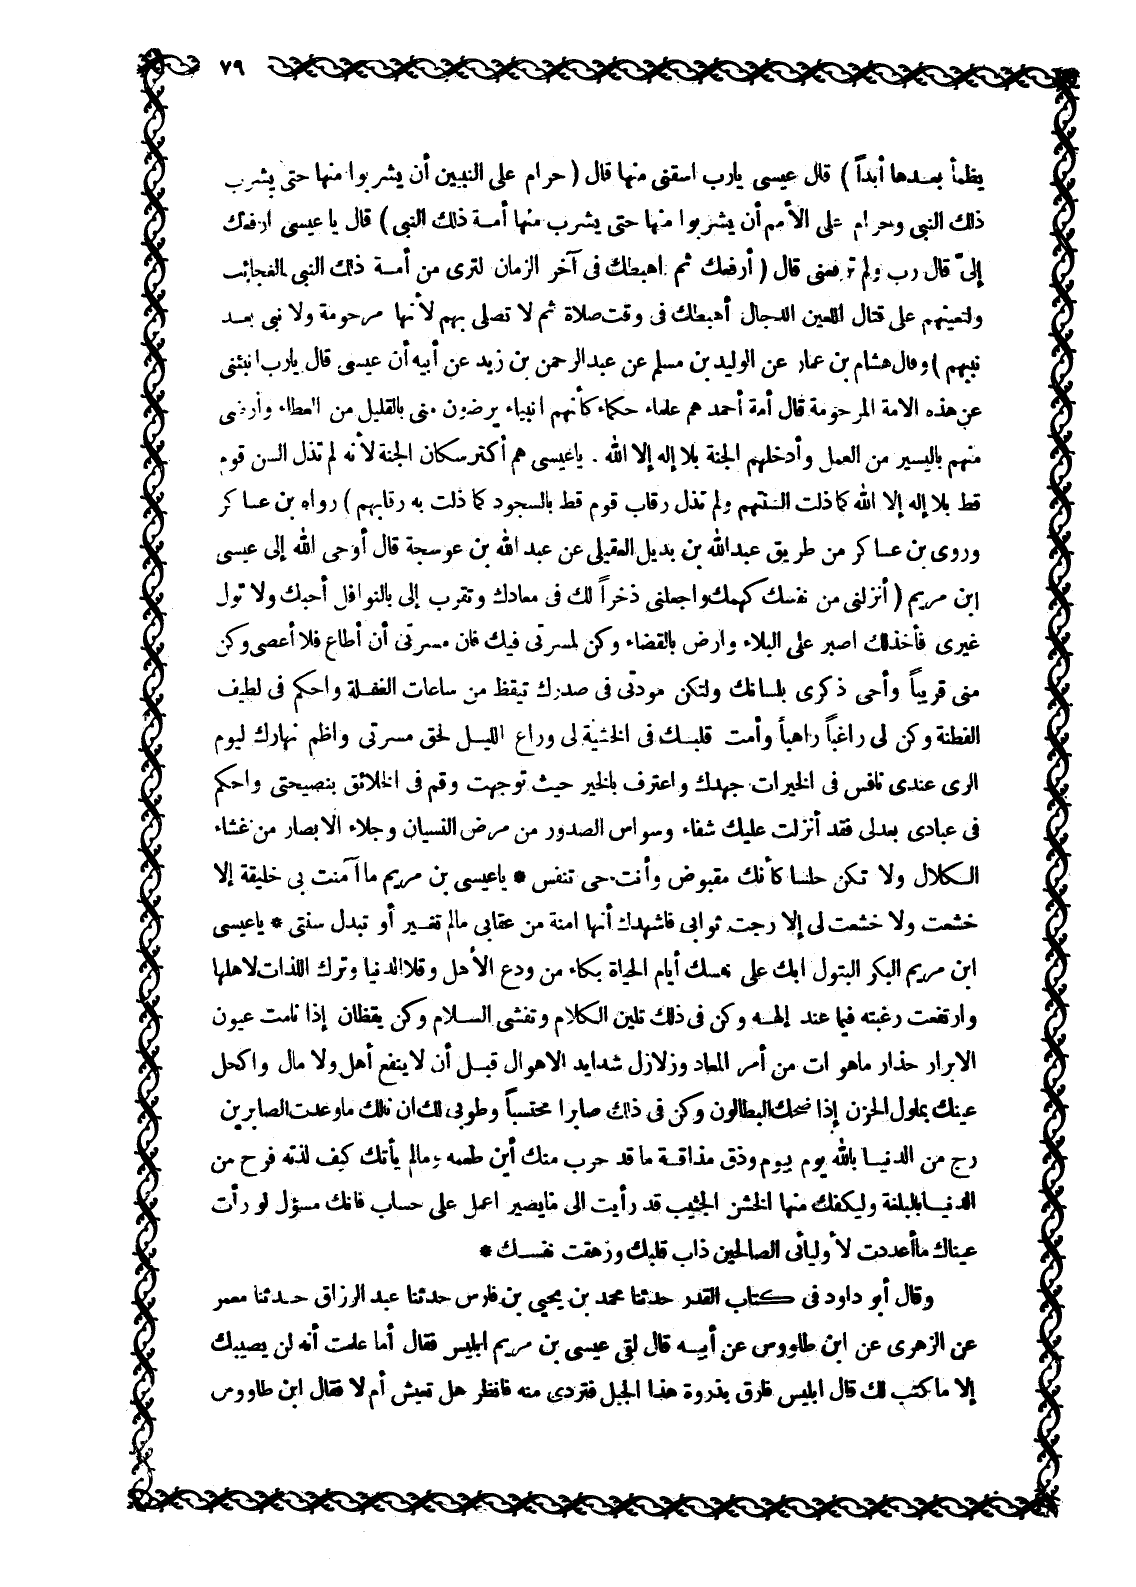 ٧٩
يظمأ بعدها أبداً ) قال عيسى يارب اسقنى منها قال ( حرام على النبيين أن يشربوا منها حتى يشرب
ذلك النبى وحرام على الأمم أن يشربوا منها حتى يشرب منها أمة ذلك النبى ) قال يا عيسى ارفعك
إلىّ قال رب ولم ترفعنى قال ( أرفعك ثم اهبطك فى آخر الزمان لترى من أمة ذلك النبى العجائب
ولتعينهم على قتال اللعين الدجال أهبطك فى وقت صلاة ثم لا تصلى بهم لأنها مرحومة ولا نبى بعد
نبيهم ) وقال هشام بن عمار عن الوليد بن مسلم عن عبدالرحمن بن زيد عن أبيه أن عيسى قال يارب انبئنى
عن هذه الامة المرحومة قال أمة أحمد هم علماء حكماء كأنهم انبياء يرضون منى بالقليل من العطاء وأرضى
منهم باليسير من العمل وأدخلهم الجنة بلا إله إلا الله . ياعيسى هم أكثر سكان الجنة لأنه لم تذل السن قوم
قط بلا إله إلا الله كما ذلت السنتهم ولم تذل رقاب قوم قط بالسجود كما ذلت به رقابهم ) رواه بن عساكر
وروى بن عساكر من طريق عبدالله بن بديل العقيلى عن عبد الله بن عوسجة قال أوحى الله إلى عيسى
ابن مريم ( أنزلنى من نفسك كهمك واجعلنى ذخراً لك فى معادك وتقرب إلى بالنوافل أحبك ولا تول
غيرى فأخذلك اصبر على البلاء وارض بالقضاء وكن لمسرتى فيك فان مسرتى أن أطاع فلا أعصى وكن
منى قريباً وأحى ذكرى بلسانك ولتكن مودتى فى صدرك تيقظ من ساعات الغفلة واحكم فى لطيف
الفطنة وكن لى راغباً راهباً وأمت قلبك فى الخشية لى وراع الليل لحق مسرتى واظم نهارك ليوم
الرى عندى نافس فى الخيرات جهدك واعترف بالخير حيث توجهت وقم فى الخلائق بنصيحتى واحكم
فى عبادى بعدلى فقد أنزلت عليك شفاء وسواس الصدور من مرض النسيان وجلاء الابصار من غشاء
الكلال ولا تكن حلسا كأنك مقبوض وأنت حى تنفس * ياعيسى بن مريم ما آمنت بى خليقة إلا
خشعت ولا خشعت لى إلا رجت ثوابى فاشهدك أنها امنة من عقابى مالم تغير أو تبدل سنتى * ياعيسى
ابن مريم البكر البتول ابك على نفسك أيام الحياة بكاء من ودع الأهل وقلا الدنيا وترك اللذات لاهلها
وارتفعت رغبته فيما عند إلهه وكن فى ذلك تلين الكلام وتفشى السلام وكن يقظان إذا نامت عيون
الابرار حذار ماهو ات من أمر المعاد وزلازل شدايد الاهوال قبل أن لا ينفع أهل ولا مال واكحل
عينك بملول الحزن إذا ضحك البطالون وكن فى ذلك صابرا محتسباً وطوبى لك ان نالك ما وعدت الصابرين
رج من الدنيا بالله يوم بيوم وذق مذاقة ما قد حرب منك أين طعمه ومالم يأتك كيف لذته فرح من
الدنيا بالبلغة وليكفك منها الخشن الجثيب قد رأيت الى مايصير اعمل على حساب فانك مسؤل لو رأت
عيناك ما أعددت لأوليائى الصالحين ذاب قلبك وزهقت نفسك *
وقال أبو داود فى كتاب القدر حدثنا محمد بن يحيى بن فارس حدثنا عبد الرزاق حدثنا معمر
عن الزهرى عن ابن طاووس عن أبيه قال لقى عيسى بن مريم ابليس فقال أما علمت أنه لن يصيبك
إلا ما كتب لك قال ابليس فارق بذروة هذا الجبل فتردى منه فانظر هل تعيش أم لا فقال ابن طاووس